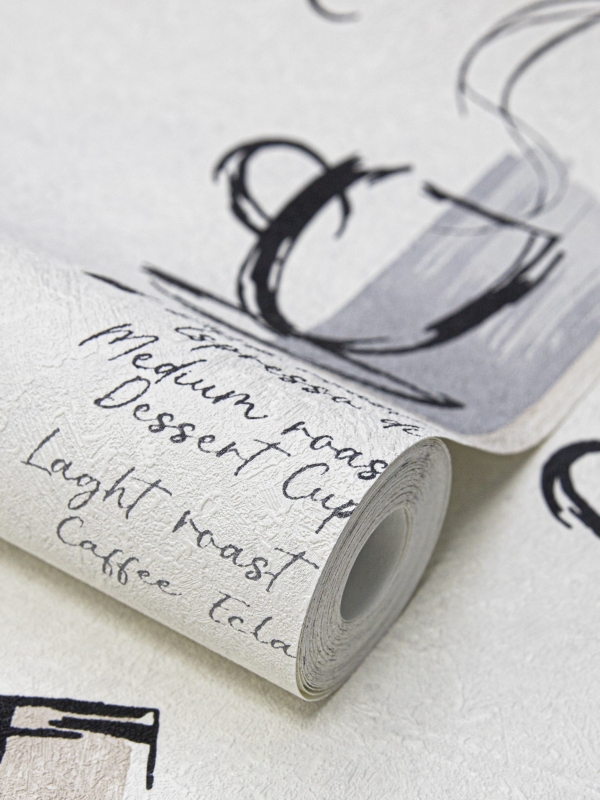 Espresso
Medium roas
Dessert Cup
Laght roast
Caffee Ecla